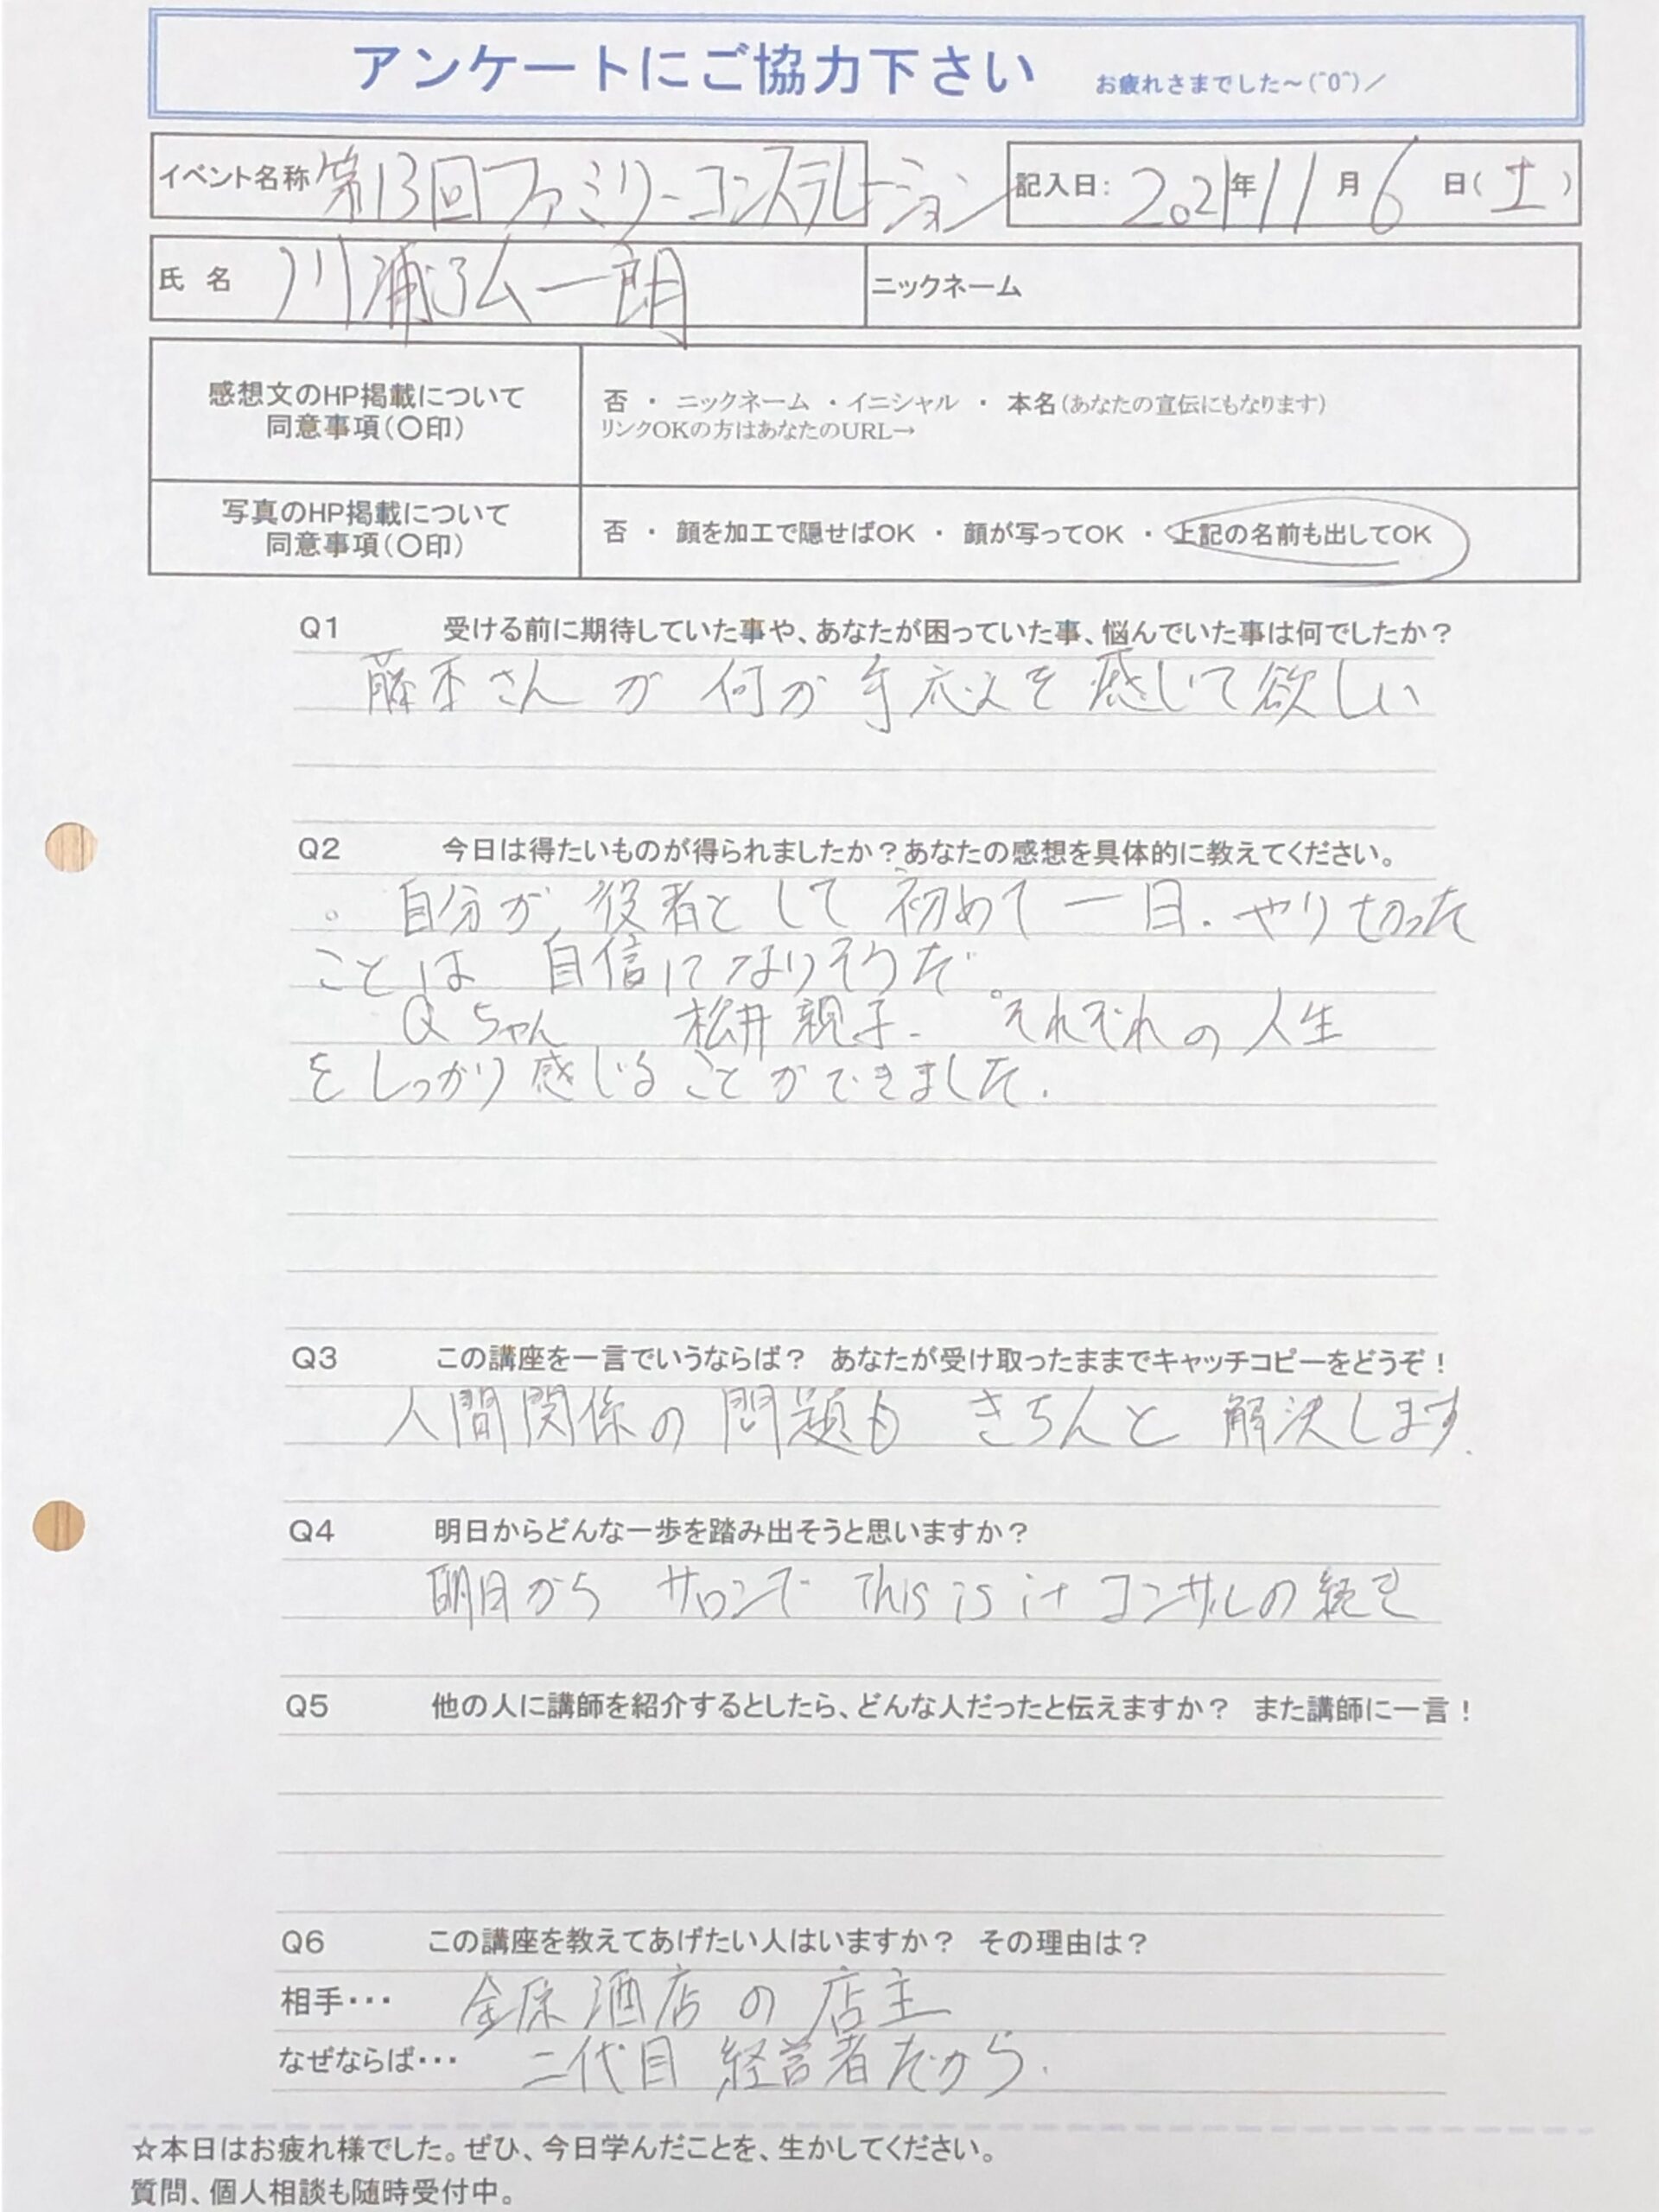 アンケートにご協力下さい お疲れさまでした～(^0^)／
イベント名称 第13回ファミリーコンステレーション 記入日: 2021年 11月 6日(土)
氏 名 川浦弘一朗 ニックネーム
感想文のHP掲載について
同意事項(〇印)
否 ・ ニックネーム ・イニシャル ・ 本名(あなたの宣伝にもなります)
リンクOKの方はあなたのURL→
写真のHP掲載について
同意事項(〇印)
否 ・ 顔を加工で隠せばOK ・ 顔が写ってOK ・ 上記の名前も出してOK
Q1 受ける前に期待していた事や、あなたが困っていた事、悩んでいた事は何でしたか？
さんが 何か 手応えを 感じて欲しい
Q2 今日は得たいものが得られましたか？あなたの感想を具体的に教えてください。
。自分が 役者として 初めて 一日. やり切った
ことは 自信になりそうだ。
Qちゃん 松井親子- それぞれの人生
をしっかり感じることができました.
Q3 この講座を一言でいうならば？ あなたが受け取ったままでキャッチコピーをどうぞ！
人間関係の 問題も きちんと 解決します.
Q4 明日からどんな一歩を踏み出そうと思いますか？
明日から サロンで This is it コンサルの
Q5 他の人に講師を紹介するとしたら、どんな人だったと伝えますか？ また講師に一言！
Q6 この講座を教えてあげたい人はいますか？ その理由は？
相手･･･ 金原酒店の店主
なぜならば･･･ 二代目 経営者だから.
☆本日はお疲れ様でした。ぜひ、今日学んだことを、生かしてください。
質問、個人相談も随時受付中。